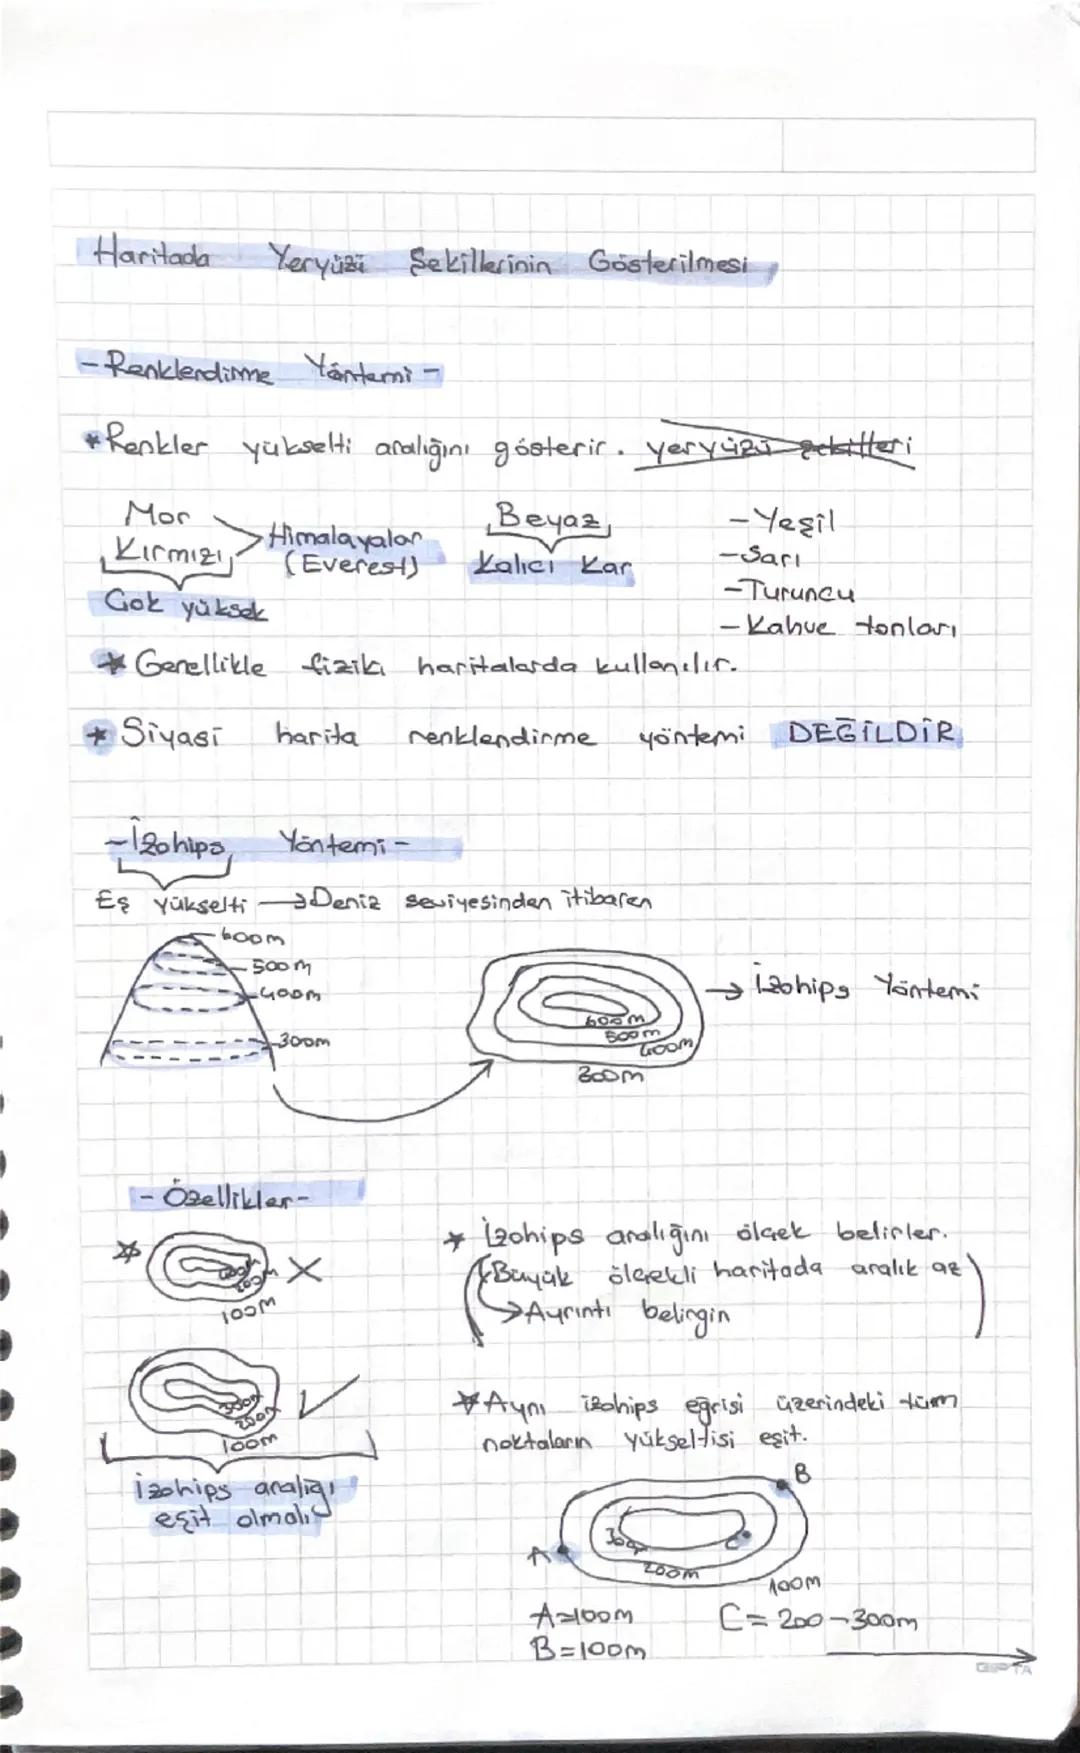 Haritada Yeryüzü Şekillerinin Gösterilmesi
- Renklendirme Yöntemi -
* Renkler yükselti aralığını gösterir. yeryüzü şekilleri
Mor
Kırmızı
Himalayalar
(Everest)
Çok yüksek
Beyaz
Kalıcı Kar
- Yeşil
- Sarı
- Turuncu
- Kahve tonları
* Genellikle fiziki haritalarda kullanılır.
* Siyasi harita renklendirme yöntemi DEĞİLDİR
- İzohips Yöntemi -
Eş yükselti → Deniz seviyesinden itibaren
600m
500m
400m
300m
600m
500m
400m
300m
→ İzohips Yöntemi
- Özellikler -
*
200m
100m
X
300m
200m
100m
İzohips aralığı
eşit olmalı
* İzohips aralığını ölçek belirler.
Büyük ölçekli haritada aralık az
→ Ayrıntı belirgin
* Aynı izohips eğrisi üzerindeki tüm
noktaların yükseltisi eşit.
B
A
C
300
200m
100m
A=100m
B=100m
C= 200-300m
GIPTA